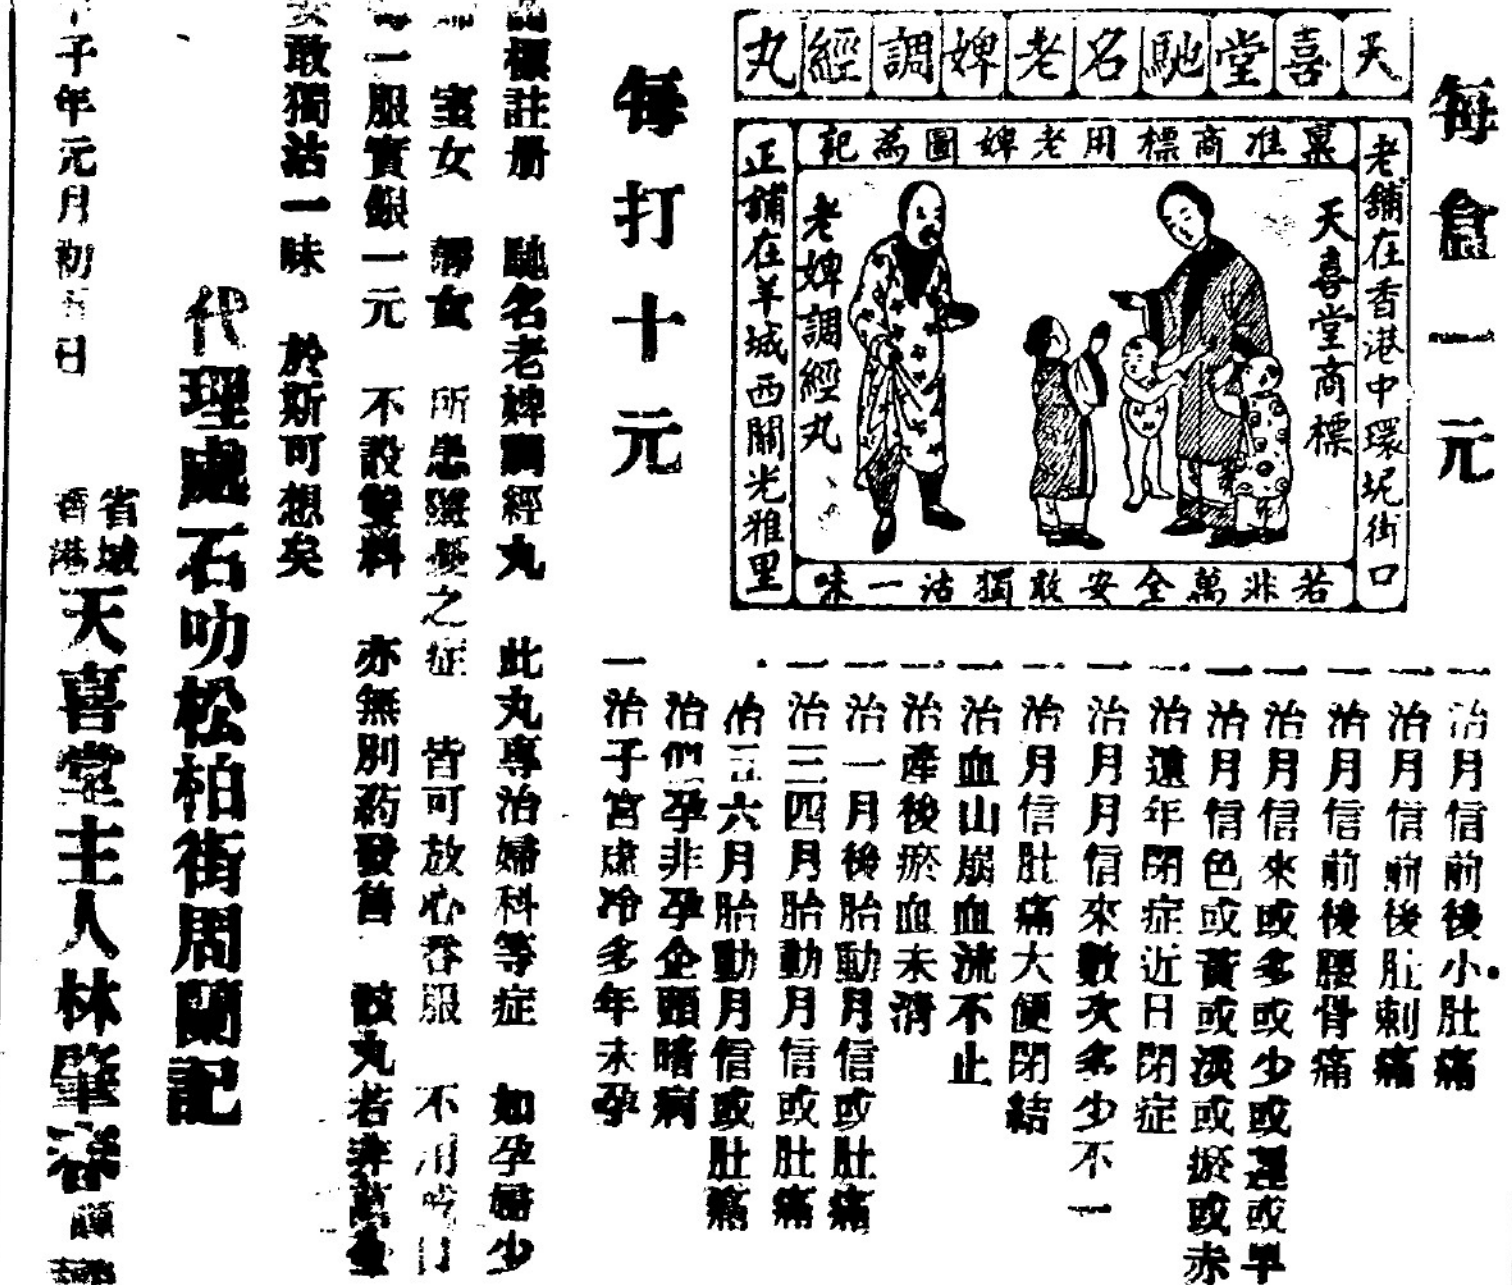 天喜堂馳名老婢調經丸
每盒一元
老舖在香港中環坭街口
稟准商標用老婢圖為記
天喜堂商標
老婢調經丸
正舖在羊城西關光雅里
若非萬全安敢獨沽一味
每打十元
一治月信前後小肚痛
一治月信前後肚刺痛
一治月信前後腰骨痛
一治月信來或多或少或遲或早
一治月信色或黃或淡或瘀或赤
一治遠年閉症近日閉症
一治月月信來數次多少不一
一治月信肚痛大便閉結
一治血山崩血流不止
一治產後瘀血未清
一治一月後胎動月信或肚痛
一治三四月胎動月信或肚痛
治五六月胎動月信或肚痛
治們孕非孕企頭暗病
一治子宮虛冷多年未孕
標註册 馳名老婢調經丸 此丸專治婦科等症 如孕婦少
室女 孀女 所患難憂之症 皆可放心吞服 不用
一服實銀一元 不設雙料 亦無別药發售 該丸若非萬全
安敢獨沽一味 於斯可想矣
代理處石叻松柏街周蘭記
子年元月初 日
省城
香港
天喜堂主人林肇容